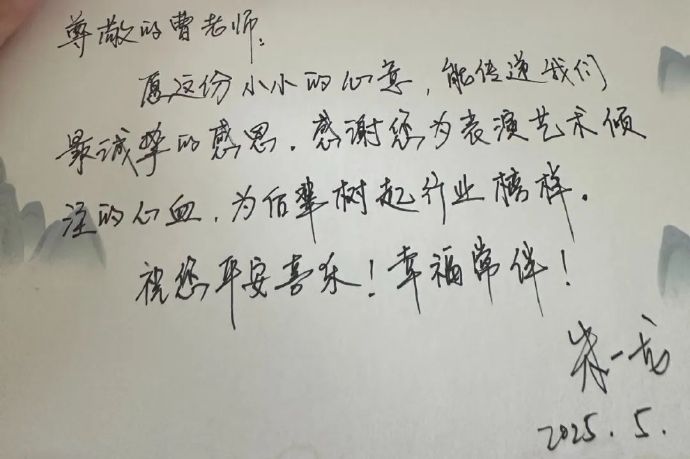 尊敬的曹老师:
愿这份小小的心意,能传递我们
最诚挚的感恩.感谢您为表演艺术倾
注的心血,为后辈树起行业榜样.
祝您平安喜乐!幸福常伴!
朱一龙
2025.5.